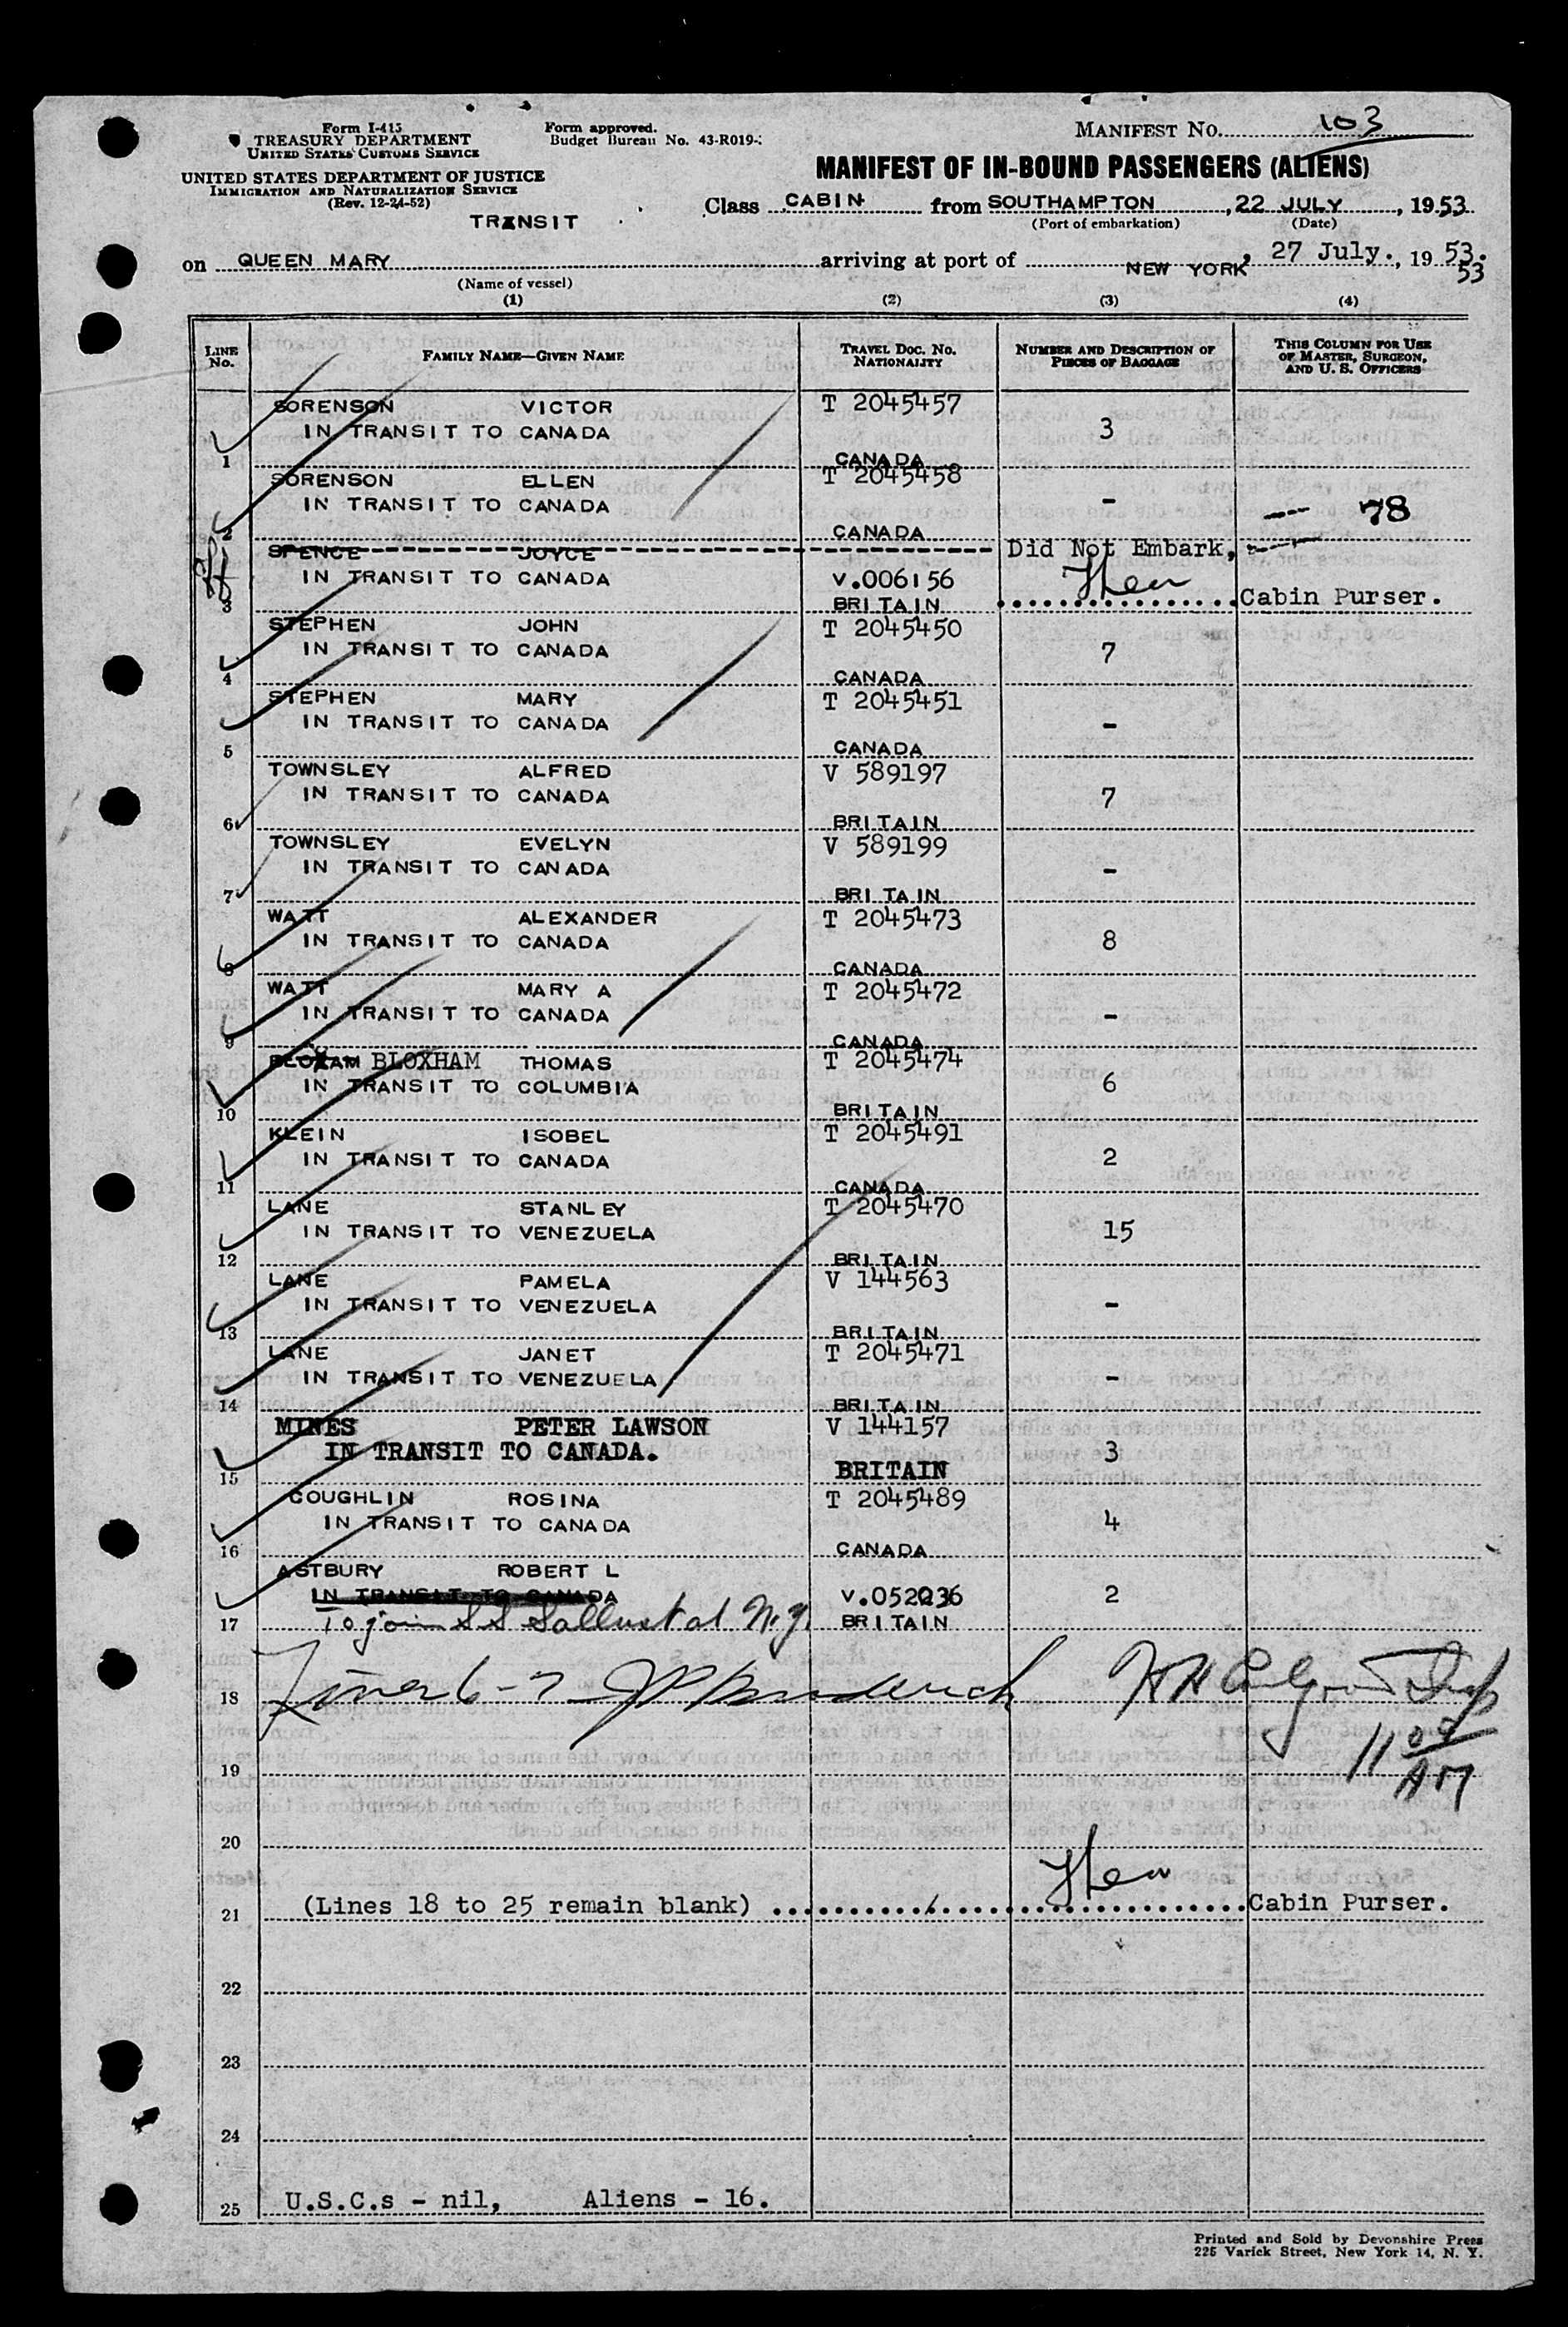 Form I-415
TREASURY DEPARTMENT
UNITED STATES CUSTOMS SERVICE
UNITED STATES DEPARTMENT OF JUSTICE
IMMIGRATION AND NATURALIZATION SERVICE
(Rev. 12-24-52)
Form approved.
Budget Bureau No. 43-R019-
MANIFEST No. 103
MANIFEST OF IN-BOUND PASSENGERS (ALIENS)
TRANSIT
Class CABIN from SOUTHAMPTON, 22 JULY, 1953
(Port of embarkation) (Date)
on QUEEN MARY arriving at port of NEW YORK, 27 July., 19 53.
53
(Name of vessel)
(1) (2) (3) (4)
LINE No. FAMILY NAME—GIVEN NAME TRAVEL DOC. NO. NATIONALITY NUMBER AND DESCRIPTION OF PIECES OF BAGGAGE THIS COLUMN FOR USE OF MASTER, SURGEON, AND U. S. OFFICERS
SORENSON VICTOR T 2045457
IN TRANSIT TO CANADA 3
1 CANADA
SORENSON ELLEN T 2045458
IN TRANSIT TO CANADA - — 78
2 CANADA
SPENCE JOYCE Did Not Embark,
IN TRANSIT TO CANADA V.006156
3 BRITAIN Cabin Purser.
STEPHEN JOHN T 2045450
IN TRANSIT TO CANADA 7
4 CANADA
STEPHEN MARY T 2045451
IN TRANSIT TO CANADA -
5 CANADA
TOWNSLEY ALFRED V 589197
IN TRANSIT TO CANADA 7
6 BRITAIN
TOWNSLEY EVELYN V 589199
IN TRANSIT TO CANADA -
7 BRITAIN
WATT ALEXANDER T 2045473
IN TRANSIT TO CANADA 8
8 CANADA
WATT MARY A T 2045472
IN TRANSIT TO CANADA -
9 CANADA
BLOXAM BLOXHAM THOMAS T 2045474
IN TRANSIT TO COLUMBIA 6
10 BRITAIN
KLEIN ISOBEL T 2045491
IN TRANSIT TO CANADA 2
11 CANADA
LANE STANLEY T 2045470
IN TRANSIT TO VENEZUELA 15
12 BRITAIN
LANE PAMELA V 144563
IN TRANSIT TO VENEZUELA -
13 BRITAIN
LANE JANET T 2045471
IN TRANSIT TO VENEZUELA -
14 BRITAIN
MINES PETER LAWSON V 144157
IN TRANSIT TO CANADA. 3
15 BRITAIN
COUGHLIN ROSINA T 2045489
IN TRANSIT TO CANADA 4
16 CANADA
ASTBURY ROBERT L
IN TRANSIT TO CANADA V.052036 2
17 To join SS Sallust at N.Y. BRITAIN
18 Lines 6-7
19 11 09 AM
20
21 (Lines 18 to 25 remain blank) Cabin Purser.
22
23
24
25 U.S.C.s - nil, Aliens - 16.
Printed and Sold by Devonshire Press
225 Varick Street, New York 14, N. Y.